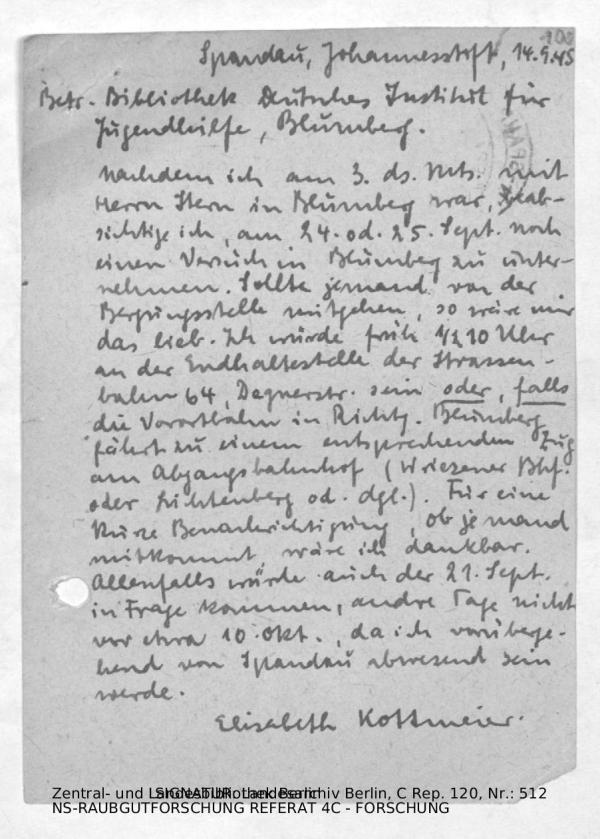 100
Spandau, Johannesstift, 14.9.45
Betr. Bibliothek Deutsches Institut für
Jugendhilfe, Blumberg.
Nachdem ich am 3. ds. Mts. mit
Herrn Stern in Blumberg war, beab-
sichtige ich, am 24. od. 25. Sept. noch
einen Versuch in Blumberg zu unter-
nehmen. Sollte jemand von der
Bergungsstelle mitgehen, so wäre mir
das lieb. Ich würde früh 1/2 10 Uhr
an der Endhaltestelle der Strassen-
bahn 64, Degnerstr. sein oder, falls
die Vorortbahn in Richtg. Blumberg
fährt zu einem entsprechenden Zug
am Abgangsbahnhof (Wriezener Bhf.
oder Lichtenberg od. dgl.). Für eine
kurze Benachrichtigung, ob jemand
mitkommt, wäre ich dankbar.
Allenfalls würde auch der 21. Sept.
in Frage kommen, andre Tage nicht
vor etwa 10. Okt., da ich vorüberge-
hend von Spandau abwesend sein
werde.
Elisabeth Kottmeier.
Zentral- und Landesbibliothek Berlin
SIGNATUR: Landesarchiv Berlin, C Rep. 120, Nr.: 512
NS-RAUBGUTFORSCHUNG REFERAT 4C - FORSCHUNG